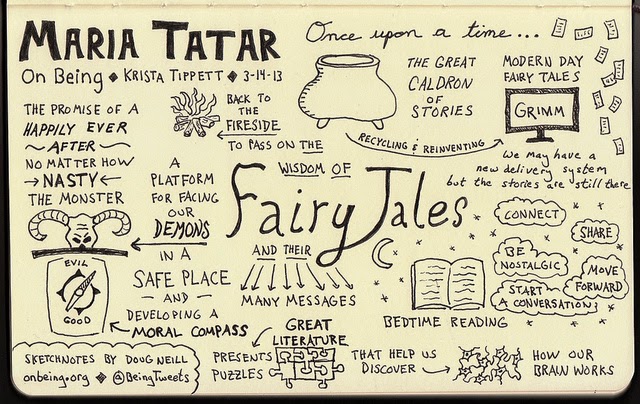 MARIA TATAR
On Being ◆ KRISTA TIPPETT ◆ 3-14-13
Once upon a time...
THE PROMISE OF A
HAPPILY EVER
~ AFTER ~
NO MATTER HOW
→ NASTY ←
THE MONSTER
BACK TO
THE
FIRESIDE
TO PASS ON THE
WISDOM OF
Fairy Tales
AND THEIR
MANY MESSAGES
THE GREAT
CALDRON
OF
STORIES
RECYCLING & REINVENTING
MODERN DAY
FAIRY TALES
GRIMM
We may have a
new delivery system
but the stories are still there
A
PLATFORM
FOR FACING
OUR
DEMONS
IN A
SAFE PLACE
— AND —
DEVELOPING A
MORAL COMPASS
EVIL
GOOD
CONNECT
SHARE
BE
NOSTALGIC
MOVE
FORWARD
START
A CONVERSATION
BEDTIME READING
GREAT
LITERATURE
PRESENTS
PUZZLES
THAT HELP US
DISCOVER
HOW OUR
BRAIN WORKS
SKETCHNOTES BY DOUG NEILL
onbeing.org ◆ @BeingTweets